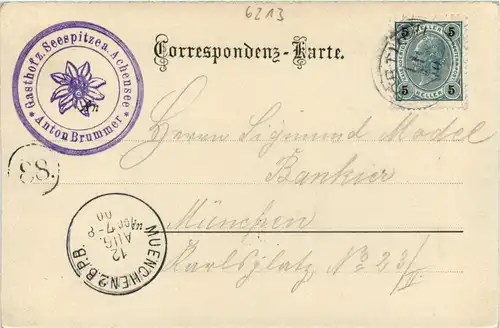 6213
Gasthof z. Seespitze a. Achensee
* Anton Brummer *
Correspondenz-Karte.
5 5
5 HELLER 5
Herrn Sigmund Model
Bankier
München
Karlsplatz No 23/II
83.
MUENCHEN 2 B.P.B.
12
AUG.
7-8
00